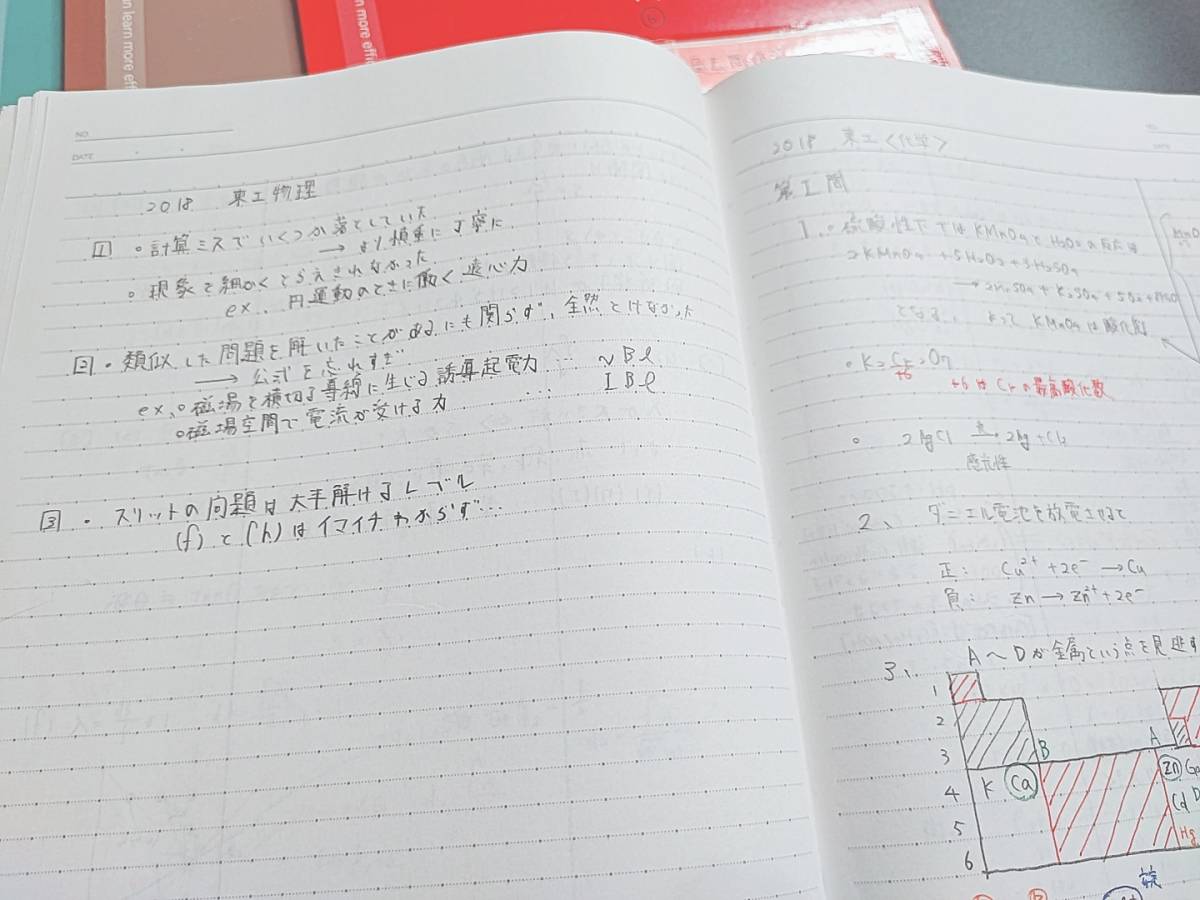 n learn more effi
an learn more effic
NO.
DATE
2018 東工物理
1 ◦計算ミスでいくつか落としていた
→ より慎重に丁寧に
◦現象を細かくとらえきれなかった
ex. 円運動のときに働く遠心力
2 ・類似した問題を解いたことがあるにも関らず、全然とけなかった
→ 公式を忘れすぎ
ex、◦磁場を横切る導線に生じる誘導起電力 … vBl
◦磁場空間で電流が受ける力 … IBl
3 ・スリットの問題は大半解けるレベル
(f)と(h)はイマイチわからず…
2018 東工<化学>
第I問
1、◦硫酸性下では KMnO4と H2O2の反応は
2KMnO4 + 5H2O2 + 3H2SO4
→ 2MnSO4 + K2SO4 + 5O2 +
となる、 よって KMnO4は酸化剤
◦K2Cr2O7
+6
+6はCrの最高酸化数
◦ 2AgCl → 2Ag + Cl2
感光性
2、 ダニエル電池を放電させると
正: Cu2+ + 2e- → Cu
負: Zn → Zn2+ + 2e-
3、 A~Dが金属という点を見逃す
1
2
3 B A
4 K Ca Zn Ga
5 Cd D
6 Hg
族